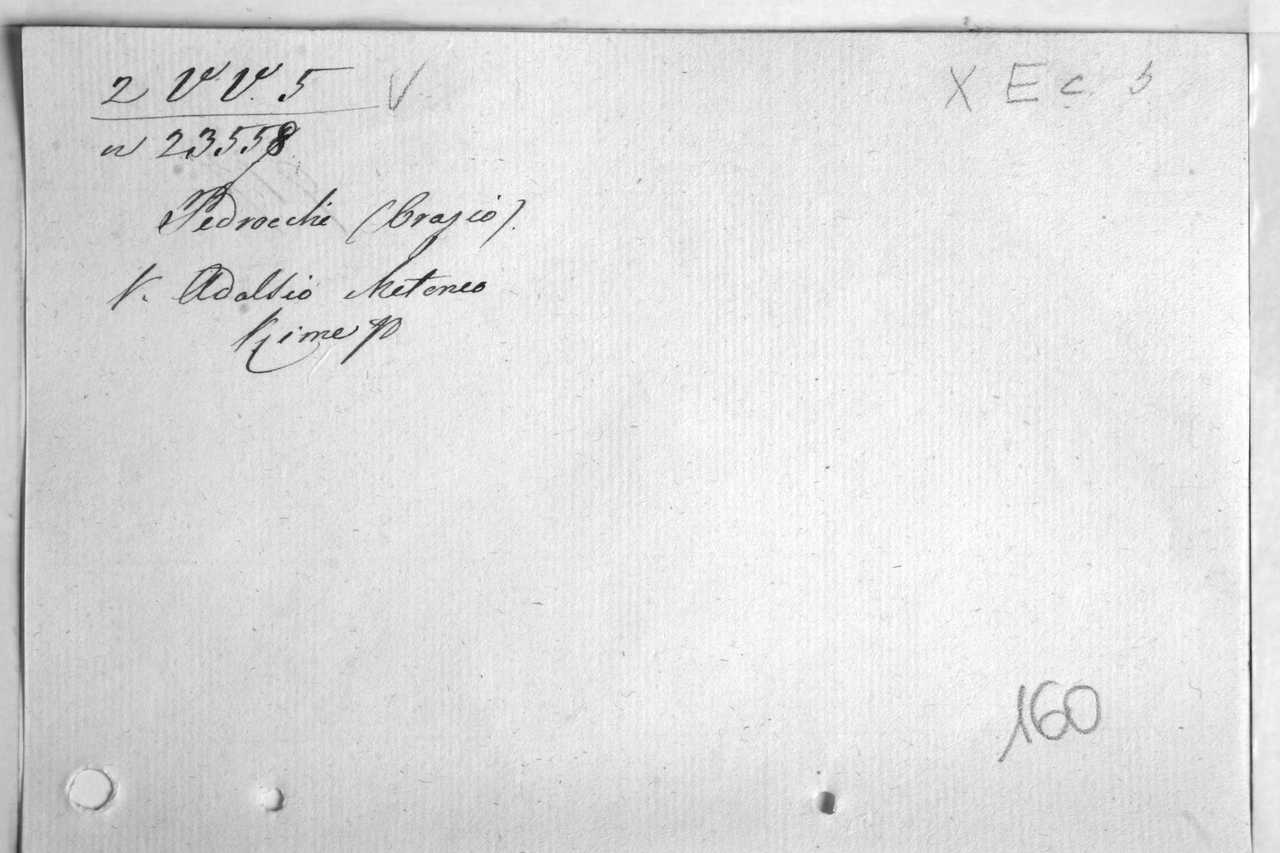 2 V. V. 5 V
X E c. 5
n 23558
Pedrocchi (Orazio).
V. Adalsio Metoneo
Rime
160